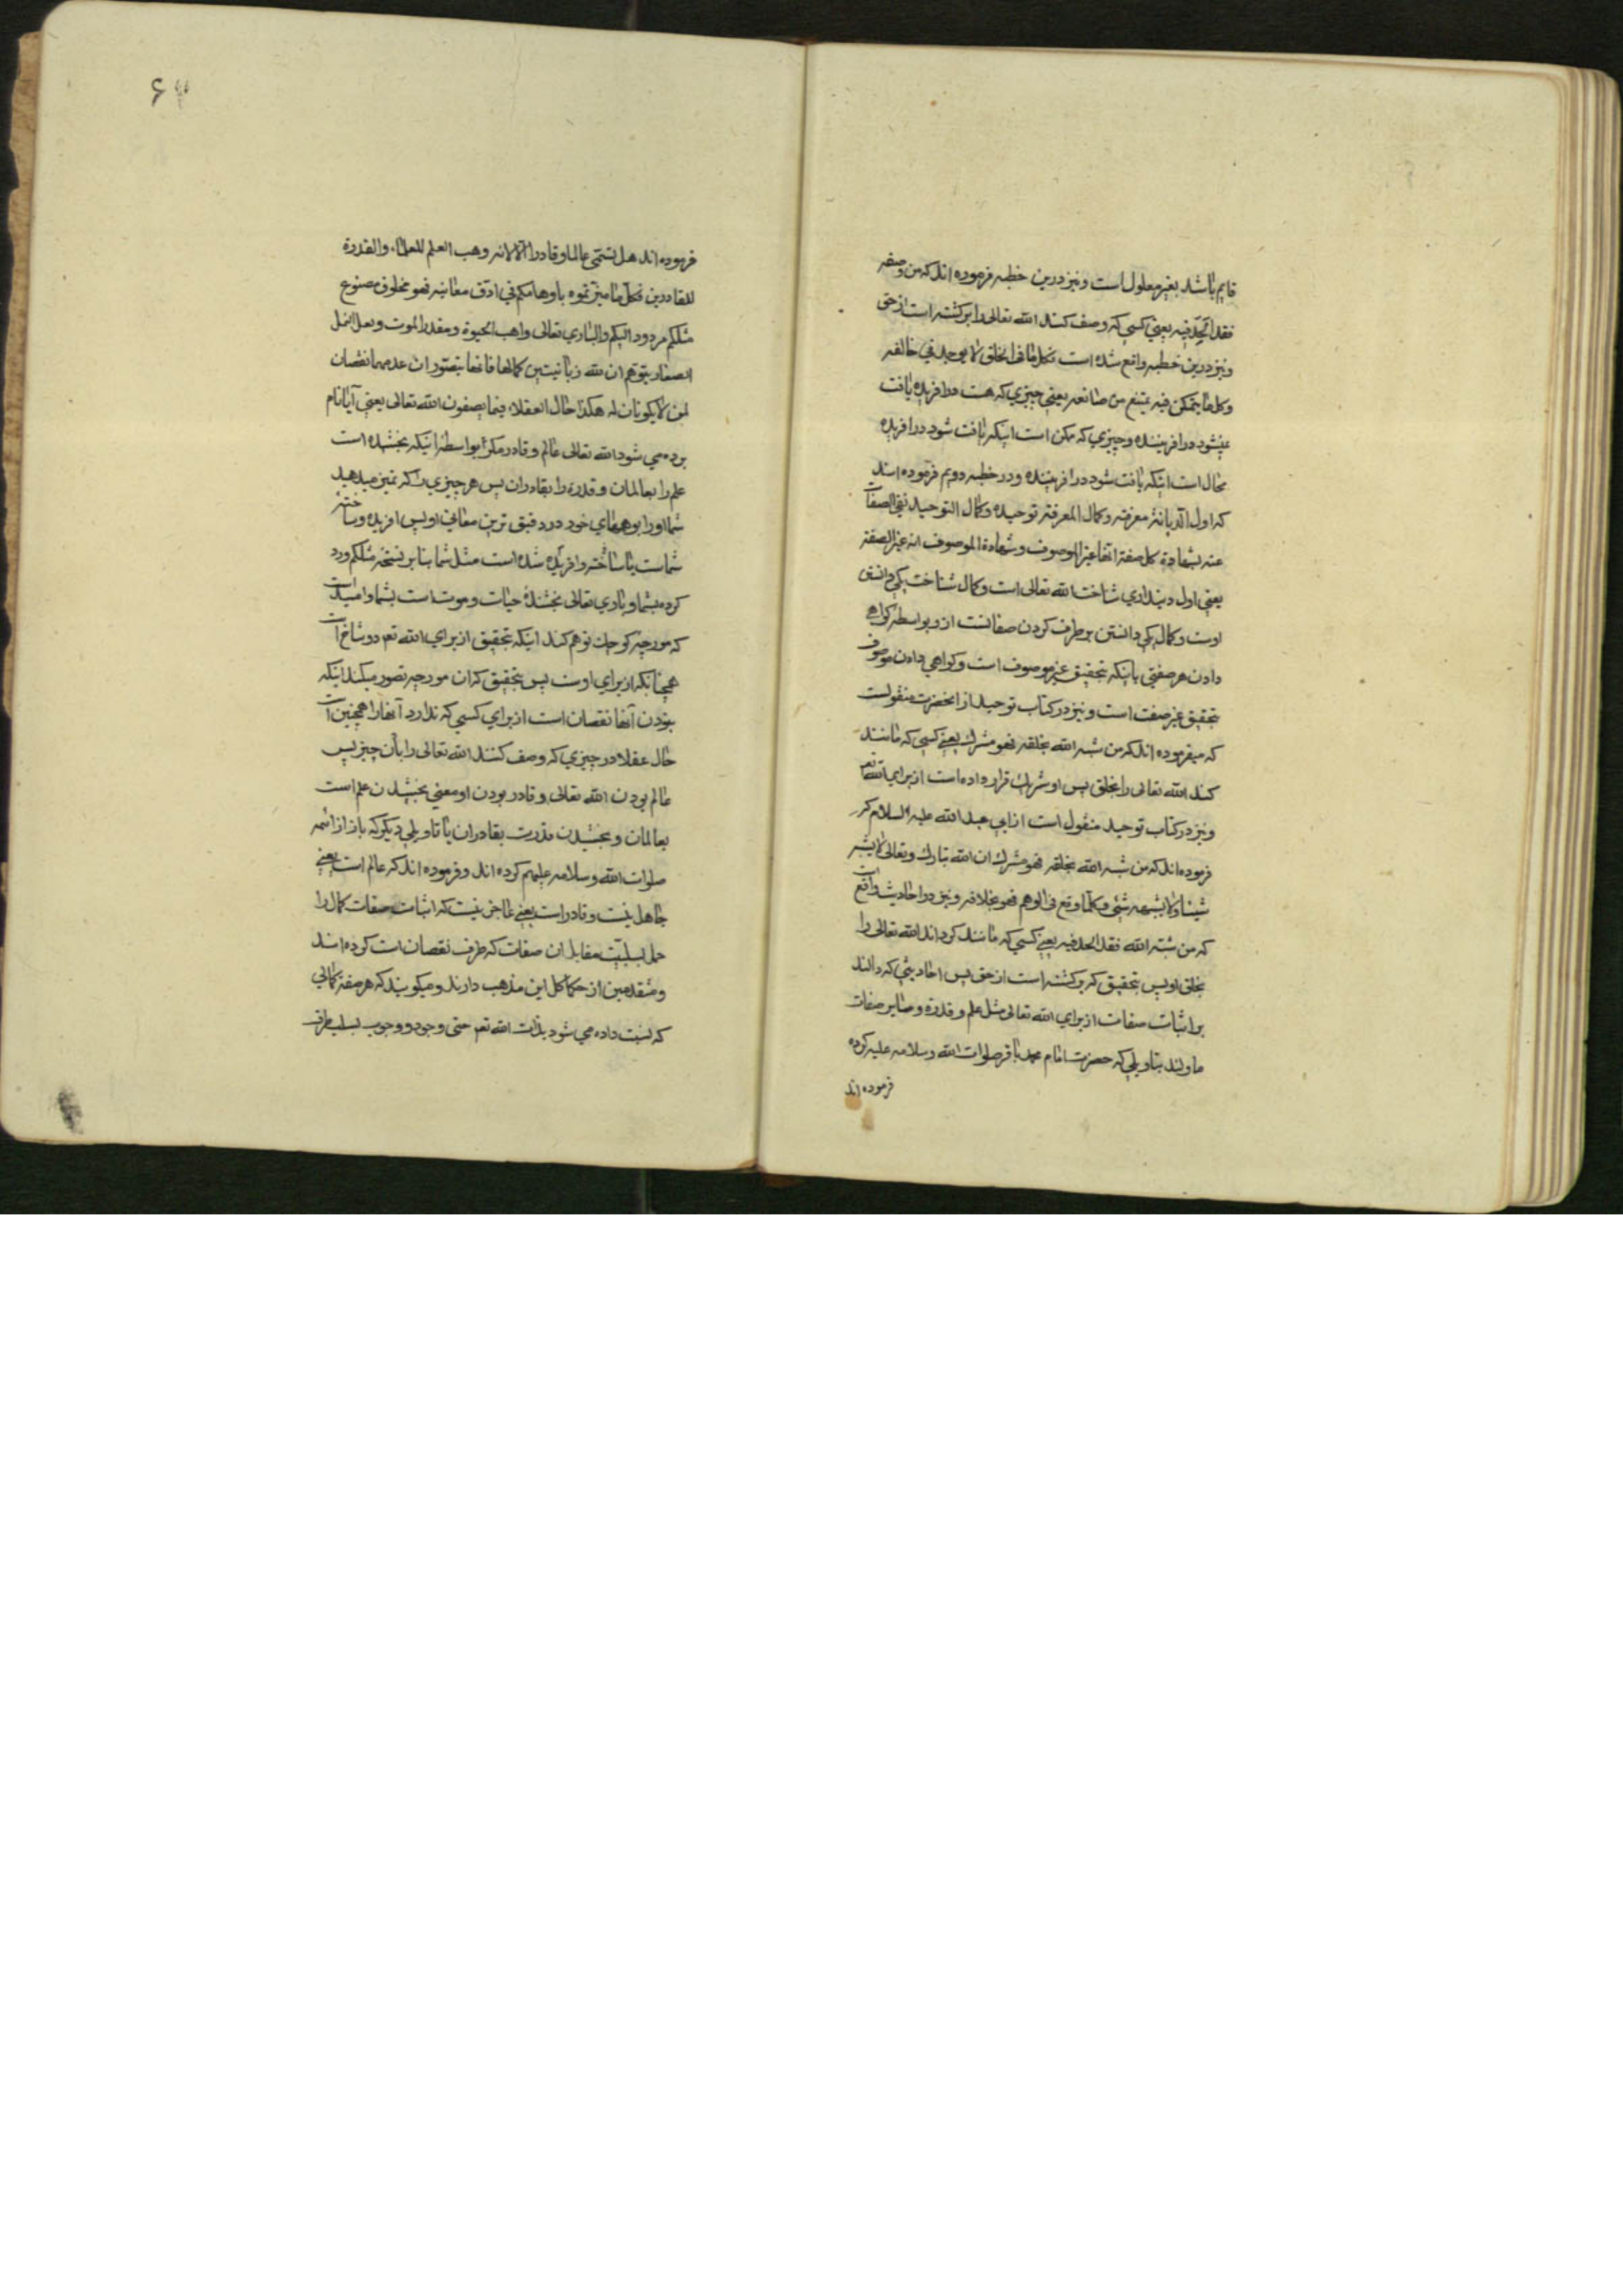 قایم باشد بغیر معلول است و نیز درین خطبه فرموده اند که من وصفه
فقد الحد فیه یعنی کسی که وصف کند الله تعالی را برکشته است از حق
و نیز درین خطبه واقع شده است فکل ما فی الخلق لا یوجد فی خالقه
وکل ما یمکن فیه یمتنع من صانعه یعنی چیزی که هست در افریده یافت
نمیشود در افریننده و چیزی که ممکن است اینکه یافت شود در افریده
محال است اینکه یافت شود در افریننده و در خطبه دویم فرموده اند
که اول الدیانة معرفته وکمال المعرفة توحیده وکمال التوحید نفی الصفات
عنه بشهادة کل صفة انها غیر الموصوف وشهادة الموصوف انه غیر الصفة
یعنی اول دینداری شناخت الله تعالی است وکمال شناخت یکی دانستن
اوست وکمال یکی دانستن برطرف کردن صفاتست ازو بواسطه کواهی
دادن هر صفتی باینکه بتحقیق غیر موصوف است وکواهی دادن موصوف
بتحقیق غیر صفت است و نیز در کتاب توحید از انحضرت منقولست
که میفرموده اند که من شبه الله بخلقه فهو مشرک یعنی کسی که مانند
کند الله تعالی را بخلق پس او شریک قرار داده است از برای الله تعم
و نیز در کتاب توحید منقول است از ابی عبد الله علیه السلام که
فرموده اند که من شبه الله بخلقه فهو مشرک ان الله تبارک وتعالی لا یشبه
شیئا ولا یشبهه شئی وکلما وقع فی الوهم فهو بخلافه و نیز در احادیث واقع است
که من شبه الله فقد الحد فیه یعنی کسی که مانند کرداند الله تعالی را
بخلق او پس بتحقیق که برکشته است از حق پس احادیثی که دالند
بر اثبات صفات از برای الله تعالی مثل علم و قدرة و سایر صفات
ماولند بتاویلی که حضرت امام محمد باقر صلوات الله وسلامه علیه کرده
فرموده اند
۶۴
فرموده اند هل تسمی عالما وقادرا الا لانه وهب العلم للعلماء والقدرة
للقادرین فکل ما میزتموه باوهامکم فی ادق معانیه فهو مخلوق مصنوع
مثلکم مردود الیکم والباری تعالی واهب الحیوة ومقدر الموت ولعل النمل
الصغار یتوهم ان لله زبانیتین کمالها فانها یتصور ان عدمهما نقصان
لمن لا یکونان له هکذا حال العقلاء فیما یصفون الله تعالی یعنی آیا نام
برده می شود الله تعالی عالم و قادر مکر بواسطه اینکه بخشیده است
علم را بعالمان و قدرة را بقادران پس هر چیزی را که تمیز میدهید
شما او را بوهمهای خود در دقیق ترین معانی او پس افریده و ساخته
شماست یا ساخته و افریده شده است مثل شما بنا بر نسخه مثلکم و رد
کرده بشما و باری تعالی بخشندهٔ حیات و موت است بشما و امید است
که مورچه کوچک توهم کند اینکه بتحقیق از برای الله تعم دو شاخ است
همچنانکه از برای اوست پس بتحقیق که ان مورچه تصور میکند اینکه
نبودن آنها نقصان است از برای کسی که ندارد آنها را همچنین است
حال عقلا در چیزی که وصف کنند الله تعالی را بآن چیز پس
عالم بودن الله تعالی و قادر بودن او معنی بخشیدن علم است
بعالمان و بخشیدن قدرت بقادران یا تاویلی دیکر که باز از ائمه
صلوات الله وسلامه علیهم کرده اند و فرموده اند که عالم است یعنی
جاهل نیست و قادر است یعنی عاجز نیست که اثبات صفات کمال را
حمل بسلبیت مقابل ان صفات که طرف نقصان است کرده اند
و متقدمین از حکما کل این مذهب دارند و میکویند که هر صفة کمالی
که نسبت داده می شود بذات الله تعم حتی وجود و وجوب بسلب طرف